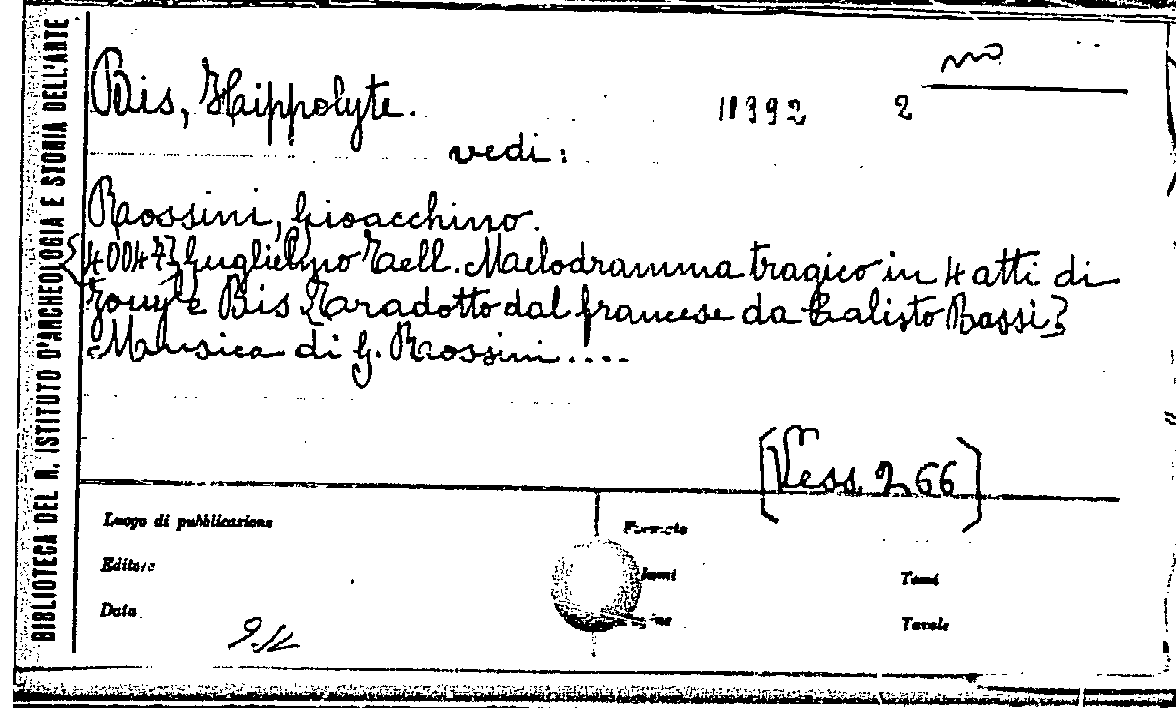 BIBLIOTECA DEL R. ISTITUTO D'ARCHEOLOGIA E STORIA DELL'ARTE
Bis, Hippolyte.
2
vedi:
Rossini, Gioacchino.
40047} Guglielmo Tell. Melodramma tragico in 4 atti di
Jouy e Bis [Tradotto dal francese da Calisto Bassi]
Musica di G. Rossini....
[Vess. 266]
Luogo di pubblicazione
Formato
Editore
Tomi
Data
Tavole